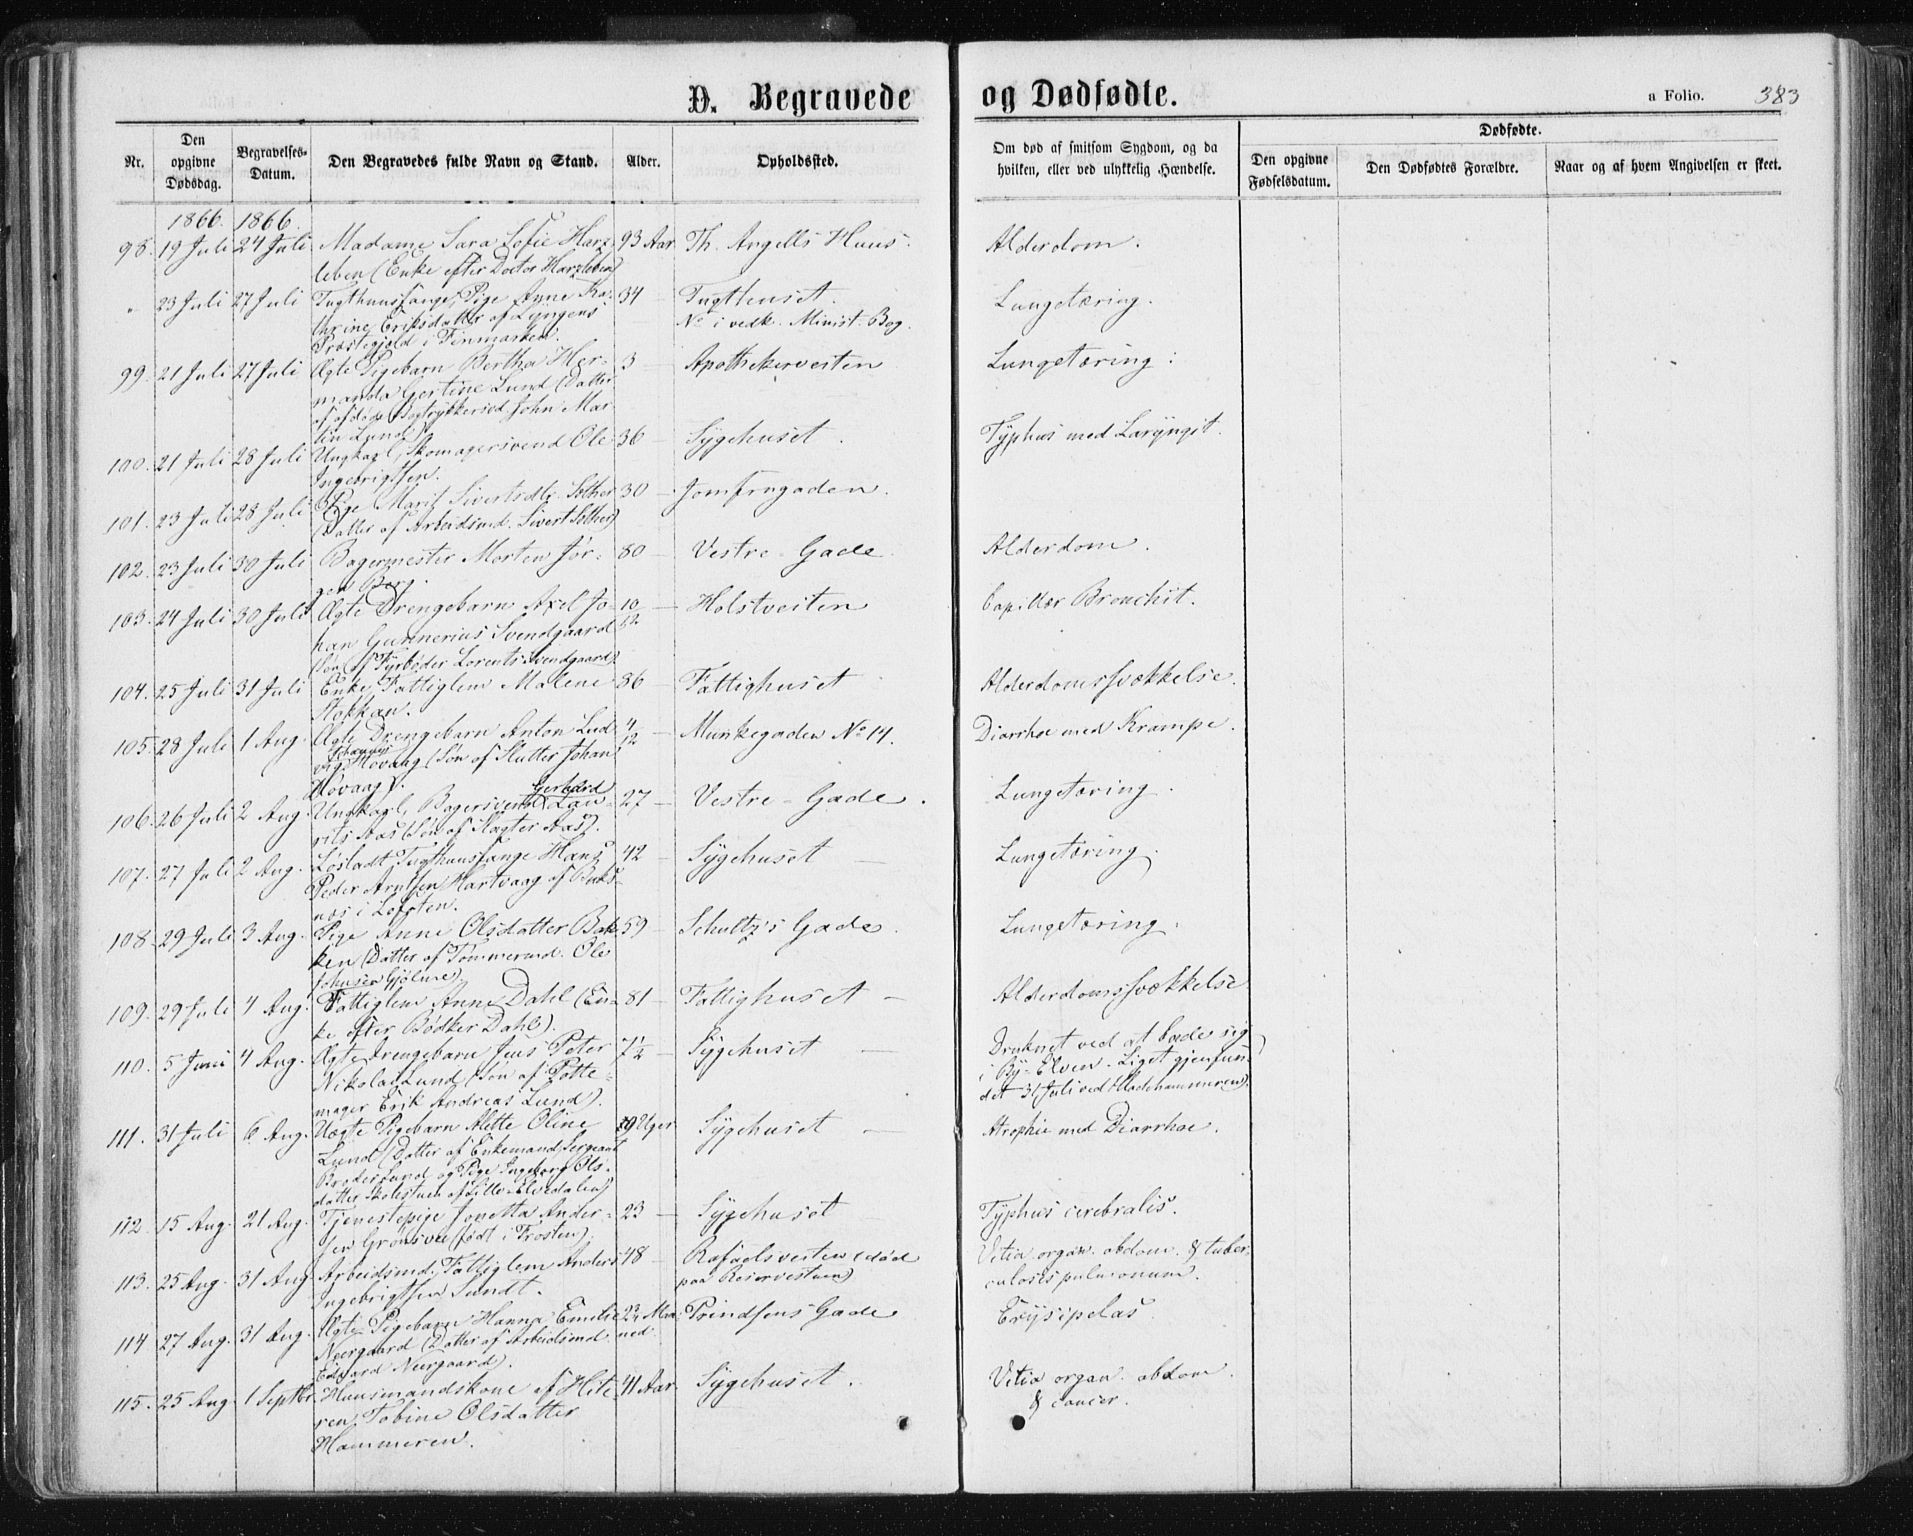 D. Begravede og Dødfødte.
a Folio. 383
Nr.
Den opgivne Dødsdag.
Begravelses-Datum.
Den Begravedes fulde Navn og Stand.
Alder.
Opholdssted.
Om død af smitsom Sygdom, og da hvilken, eller ved ulykkelig Hændelse.
Dødfødte.
Den opgivne Fødselsdatum.
Den Dødfødtes Forældre.
Naar og af hvem Angivelsen er skeet.
1866. 1866.
98. 19 Juli 24 Juli Madame Sara Sofie Harz- 93 Aar Th. Angells Huus. Alderdom.
leben (Enke efter Doctor Harzleben)
" 23 Juli 27 Juli Tugthuusfange, Pige Anne Ka- 34 — Tugthuset. Lungetæring.
thrine Eriksdatter af Lyngens No i vedk. Minist. Bog.
Præstegjeld i Finmarken.
99. 21 Juli 27 Juli Ægte Pigebarn Bertha Her- 3 — Apothekerveiten Lungetæring.
manda Gertine Lund (Datter
af afdøde Bogtrykkersvd. John Mar-
tin Lund)
100. 21 Juli 28 Juli Ungkarl, Skomagersvend Ole 36 — Sygehuset. Typhus med Laryngit.
Ingebrigtsen.
101. 23 Juli 28 Juli Pige Marit Sivertsdtr. Sæther 30 — Jomfrugaden.
(Datter af Arbeidsmd. Sivert Sæther)
102. 23 Juli 30 Juli Bagermester Morten Jør- 80 — Vestre Gade Alderdom.
gen Berg.
103. 24 Juli 30 Juli Ægte Drengebarn Axel Jo- 10/12 — Holstveiten Capillær Bronchit.
han Gunnerius Svendgaard
(Søn af Fyrbøder Lorents Svendgaard)
104. 25 Juli 31 Juli Enke, Fattiglem Malene 86 — Fattighuset Alderdomssvækkelse.
Stokkan.
105. 28 Juli 1 Aug. Ægte Drengebarn Anton Lud- 4/12 — Munkegaden No 14. Diarrhoe med Krampe.
vig Johannes Hovaag (Søn af Slutter Johan
Hovaag).
106. 26 Juli 2 Aug. Ungkarl, Bagersvend Gerhard Lau- 27 — Vestre-Gade. Lungetæring.
rits Aas (Søn af Slagter Aas).
107. 27 Juli 2 Aug. Løsladt Tugthuusfange Hans 42 — Sygehuset — Lungetæring.
Peder Arntsen Hartvaag af Buks-
næs i Lofoten.
108. 29 Juli 3 Aug. Pige Anne Olsdatter Bak- 59 — Schultz's Gade. Lungetæring.
ken (Datter af Tømmermd. Ole
Johnsen Gjølme)
109. 29 Juli 4 Aug. Fattiglem Anne Dahl (En- 81 — Fattighuset — Alderdomssvækkelse
ke efter Bødker Dahl).
110. 5 Juni 4 Aug. Ægte Drengebarn Jens Peter 7½ — Sygehuset — Druknet ved at bade sig
Nikolai Lund (Søn af Potte- i By-Elven. Liget gjenfun-
mager Erik Andreas Lund). det 31 Juli ved Ladehammeren).
111. 31 Juli 6 Aug. Uægte Pigebarn Alette Oline 19 Uger Sygehuset — Atrophie med Diarrhoe.
Lund (Datter af Enkemand, Sergeant
Broder Lund og Pige Ingeborg Ols-
datter Skolestuen af Lille Elvedalen)
112. 15 Aug. 21 Aug. Tjenestepige Jonetta Ander- 23 — Sygehuset Typhus cerebralis.
sen Grønsvee (født i Frosten).
113. 25 Aug. 31 Aug. Arbeidsmd., Fattiglem Anders 48 — Rafaelsveiten (død Vitia organ. abdom. & tuber-
Ingebrigtsen Sundt. paa Reservestuen) culosis pulmonum.
114 27 Aug. 31 Aug. Ægte Pigebarn Hanna Emilie 2½ Maa- Prindsens Gade Erysipelas
Neergaard (Datter af Arbeidsmd. ned.
Edvard Neergaard).
115. 25 Aug. 1 Septbr. Huusmandskone af Hite- 41 Aar Sygehuset. Vitia organ. abdom.
ren Tobine Olsdatter & cancer.
Hammeren.